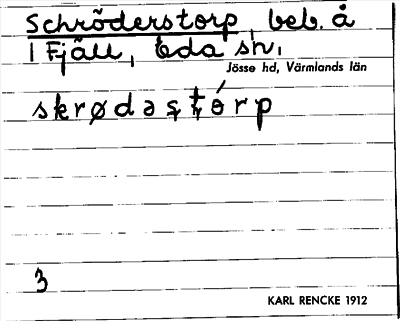 Schröderstorp, beb. å
1 Fjäll, Eda sn.
Jösse hd, Värmlands län
skrødaștórp
3
KARL RENCKE 1912